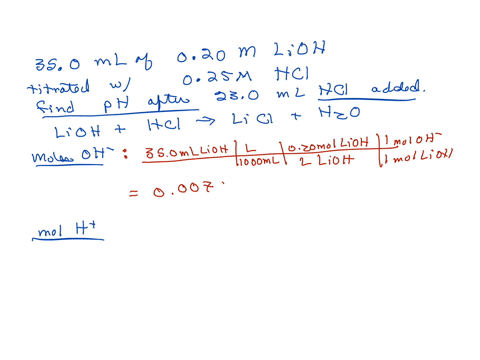 35.0 mL of 0.20 M LiOH
titrated w/ 0.25M HCl
find pH after 23.0 mL HCl added.
LiOH + HCl → LiCl + H₂O
Moles OH⁻ : 35.0mL LiOH | L | 0.20mol LiOH | 1 mol OH⁻
1000mL | L LiOH | 1 mol LiOH
= 0.007
mol H⁺